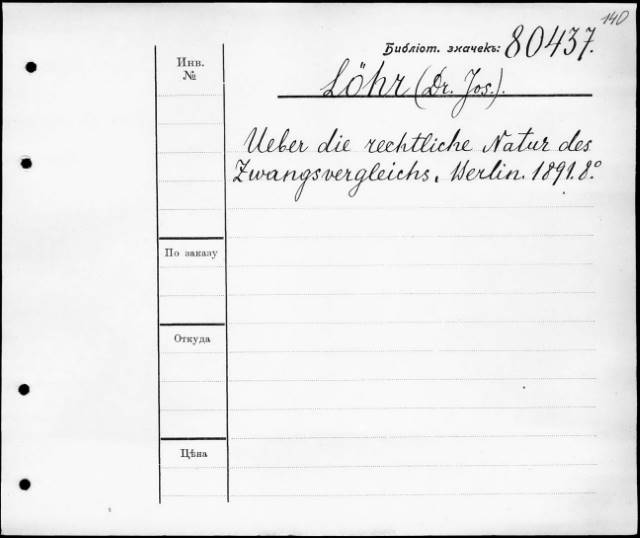 140
Библіот. значекъ: 80437.
Инв.
№
Löhr (Dr. Jos.).
Ueber die rechtliche Natur des
Zwangsvergleichs. Berlin. 1891. 8º
По заказу
Откуда
Цѣна